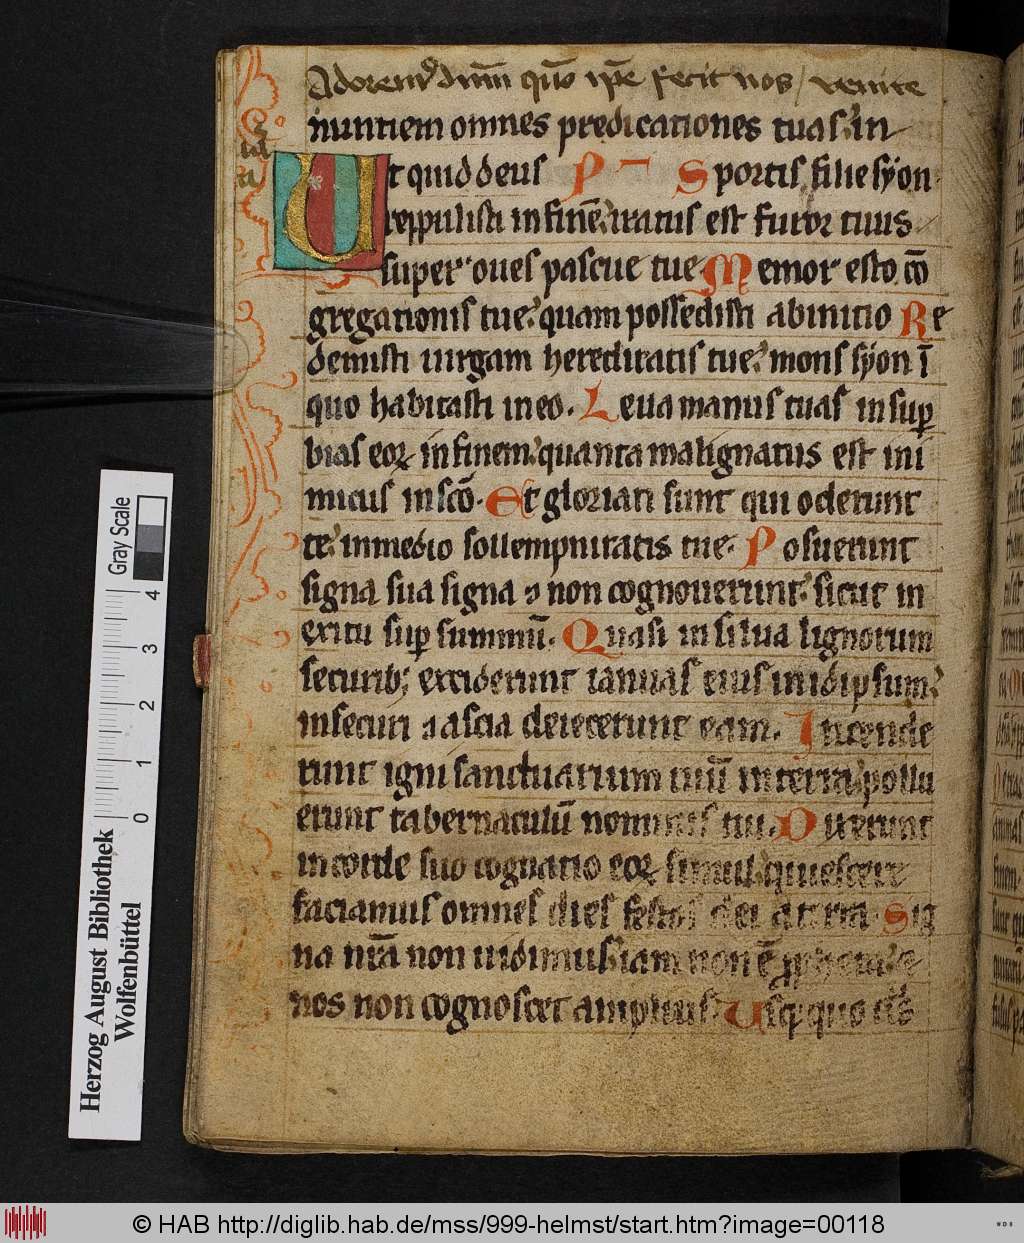 Adorem9 dnm quo ipe fecit nos / venite
nuntiem omnes predicationes tuas. in
Ut quid deus P S portis filie syon.
reppulisti in finē. iratus est furor tuus
super oues pascue tue. Memor esto cō
gregationis tue. quam possedisti abinitio Re
demisti uirgam hereditatis tue. mons syon ī
quo habitasti in eo. Leua manus tuas in sup
bias eoꝝ in finem. quanta malignatus est ini
micus in scō. Et gloriati sunt qui oderunt
te. in medio sollempnitatis tue. Posuerunt
signa sua signa ⁊ non cognouerunt. sicut in
exitu sup summū. Quasi in silua lignorum
securib; exciderunt ianuas eius in idipsum.
in securi ⁊ ascia deiecerunt eam. Incende
runt igni sanctuarium tuū in terra. pollu
erunt tabernaculū nominis tui. Dixerunt
in corde suo cognatio eoꝝ simul. quiescere
faciamus omnes dies festos dei a terra. Sig
na nrā non uidimus. iam non ē ppheta. ⁊
nos non cognoscet amplius. Usq quo ds
Gray Scale
0 1 2 3 4
Herzog August Bibliothek
Wolfenbüttel
© HAB http://diglib.hab.de/mss/999-helmst/start.htm?image=00118